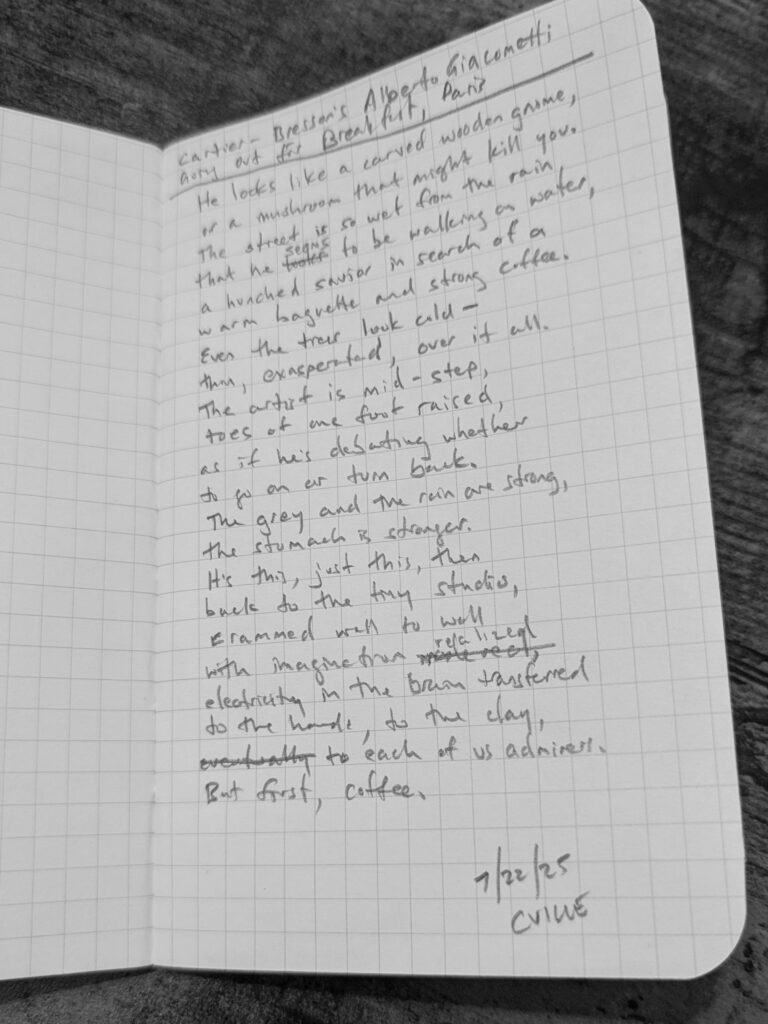 Cartier-Bresson's Alberto Giacometti
Going out for Breakfast, Paris
He looks like a carved wooden gnome,
or a mushroom that might kill you.
The street is so wet from the rain
that he seems to be walking on water,
a hunched savior in search of a
warm baguette and strong coffee.
Even the trees look cold –
thin, exasperated, over it all.
The artist is mid-step,
toes of one foot raised,
as if he's debating whether
to go on or turn back.
The grey and the rain are strong,
the stomach is stronger.
It's this, just this, then
back to the tiny studio,
crammed wall to wall
with imagination realized
electricity in the brain transferred
to the hands, to the clay,
eventually to each of us admirers.
But first, coffee.
7/22/25
CVILLE